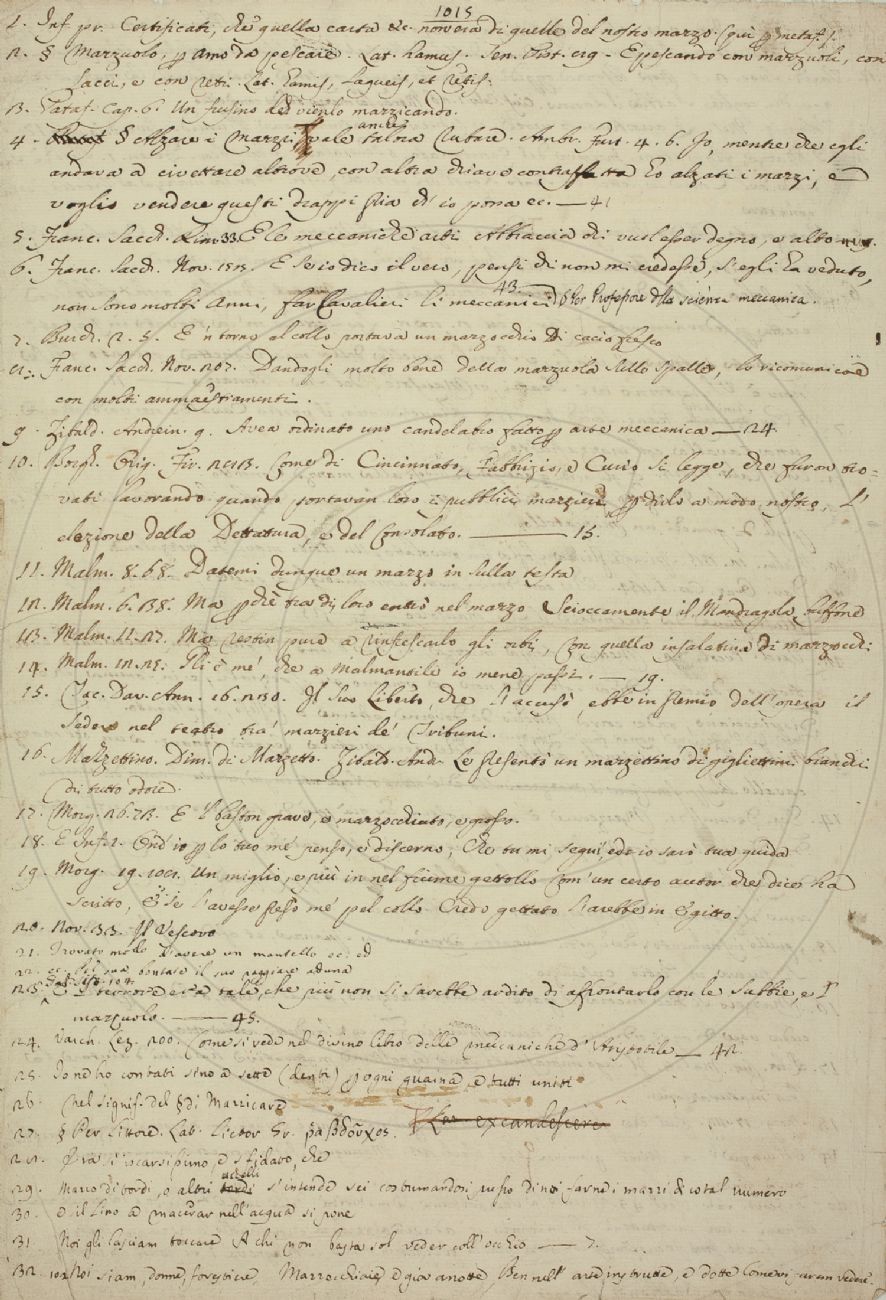 1015
1. Inf. pr. Certificati, che quella carta &c. non era di quelle del nostro marzo. (qui p metaf.).
2. § Marzuolo, p Amo da pescare. Lat. hamus. Sen. Pist. - E pescando con marzuoli, con
lacci, e con reti. Lat. hamis, laqueis, et retis.
3. Pataf. Cap. 6. Un frusino del viento marzicando.
4. § Alzare i Marzi, vale anche talora Rubare. Ambr. Furt. 4. 6. Io, mentre che egli
andava a civettare altrove, con altra chiave contraffatta ho alzati i marzi, e
voglio vendere questi drappi pria ch' io possa ec. — 41
5. Franc. Sacch. Rim. 33. E le meccaniche arti Abbraccia chi vuol esser degno, e alto
6. Franc. Sacch. Nov. 153. E se io dico il vero, pensi chi non mi credesse, s'egli ha veduto,
non sono molti Anni, far Cavalieri li meccanici 43. § Per Professore della scienza meccanica.
7. Burch. 2. 5. E 'n torno al collo portava un marzocchio Di cacio fresco
8. Franc. Sacch. Nov. 207. Dandogli molto bene della marzuola sullo spalle, lo ricomunicò
con molti ammaestramenti.
9. Zibald. Andrein. 9. Avea ordinato uno candelabro fatto p arte meccanica — 24.
10. Borgh. Orig. Fir. Come di Cincinnato, Fabbrizio, e Curio si legge, che furon tro=
vati lavorando quando portavan loro i pubblici marzieri p dirlo a modo nostro, L'
elezione della Dettatura, e del Consolato. — 15.
11. Malm. 8. 68. Datemi dunque un marzo in sulla testa
12. Malm. 6. 138. Ma pchè tra di loro entrò nel marzo Scioccamente il Mandragola buffone
13. Malm. 11. 27. Ma vestin pure a rinfrescarlo gli orbi, Con quella insalatina di marzocchi
14. Malm. Chi è mè, che a Malmantile io mene passi. — 19.
15. Tac. Dav. Ann. 16. Il suo Liberto, che l'accusò, ebbe in premio dell'opera il
sedere nel teatro tra' marzieri de' Tribuni.
16. Mazzettino. Dim. di Mazzetto. Zibald. Andr. Le presentò un marzettino di gigliettini bianchi
di tutto odore.
17. Morg. 26. 73. E 'l baston grave, e marzocchiuto, e grosso.
18. E Inf. 1. Ond' io p lo tuo mè penso, e discerno, Che tu mi segui, ed io sarò tua guida
19. Morg. 19. Un miglio, e più in nel fiume gettollo Com' un certo autor che dice ha
scritto, E se l'avesse preso mè pel collo Credo gettato l'arebbe in Egitto.
20. Nov. 33. Il Vescovo
21. Trovato modo d'avere un mantello ec. ed
22. ec. Per sua bontate il suo raggiare aduna
23. E 'l terrore era tale, che più non si sarebbe ardito di affrontarlo con le sabbie, e 'l
marzuolo. — 45.
24. Varch. Lez. 200. Come si vede nel divino libro delle meccaniche d'Aristotile — 42.
25. Io ne ho contati sino a sette (denti) p ogni guaina, e tutti uniti
26. nel signif. del § di Marzicare
27. § Per Littore. Lat. Lictor Gr. ῥαβδοῦχος. Lat. excandescere
28. che
29. Marco di tordi, o altri uccelli s'intende sei costumandosi presso di noi farne i marzi di cotal numero
30. e il lino a macerar nell'acqua si pone
31. Noi gli lasciam toccare A chi non basta sol veder coll' occhio — 7.
32. Noi siam, donne, forestiere, Marzocchiaie, e giovanotte, Ben nell' arte instrutte, e dotte Come vi farem vedere.